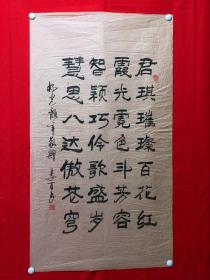 君琪璀璨百花红
霞光霓色斗芳容
智颖巧伶歌盛岁
慧思八达傲苍穹